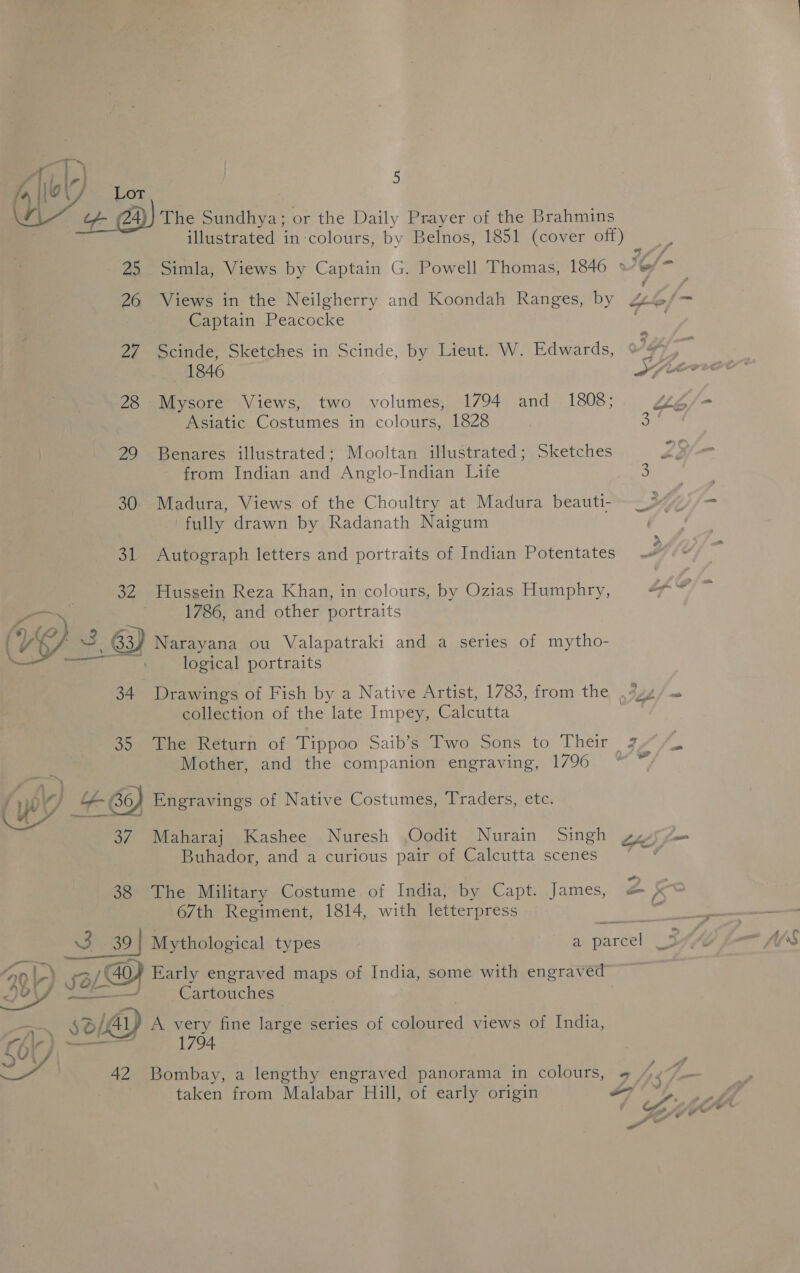 5
Lot
24 The Sundhya; or the Daily Prayer of the Brahmins
illustrated in colours, by Belnos, 1851 (cover off)
25 Simla, Views by Captain G. Powell Thomas, 1846
26 Views in the Neilgherry and Koondah Ranges, by
Captain Peacocke
27 Scinde, Sketches in Scinde, by Lieut. W. Edwards,
1846
28 Mysore Views, two volumes, 1794 and 1808;
Asiatic Costumes in colours, 1828 3
29 Benares illustrated; Mooltan illustrated; Sketches
from Indian and Anglo-Indian Life 3
30 Madura, Views of the Choultry at Madura beauti-
fully drawn by Radanath Naigum
31 Autograph letters and portraits of Indian Potentates
32 Hussein Reza Khan, in colours, by Ozias Humphry,
1786, and other portraits
33 Narayana ou Valapatraki and a series of mytho-
logical portraits
34 Drawings of Fish by a Native Artist, 1783, from the
collection of the late Impey, Calcutta
35 The Return of Tippoo Saib's Two Sons to Their
Mother, and the companion engraving, 1796
36 Engravings of Native Costumes, Traders, etc.
37 Maharaj Kashee Nuresh Oodit Nurain Singh
Buhador, and a curious pair of Calcutta scenes
38 The Military Costume of India, by Capt. James,
67th Regiment, 1814, with letterpress
39 Mythological types a parcel
40 Early engraved maps of India, some with engraved
Cartouches
41 A very fine large series of coloured views of India,
1794
42 Bombay, a lengthy engraved panorama in colours,
taken from Malabar Hill, of early origin